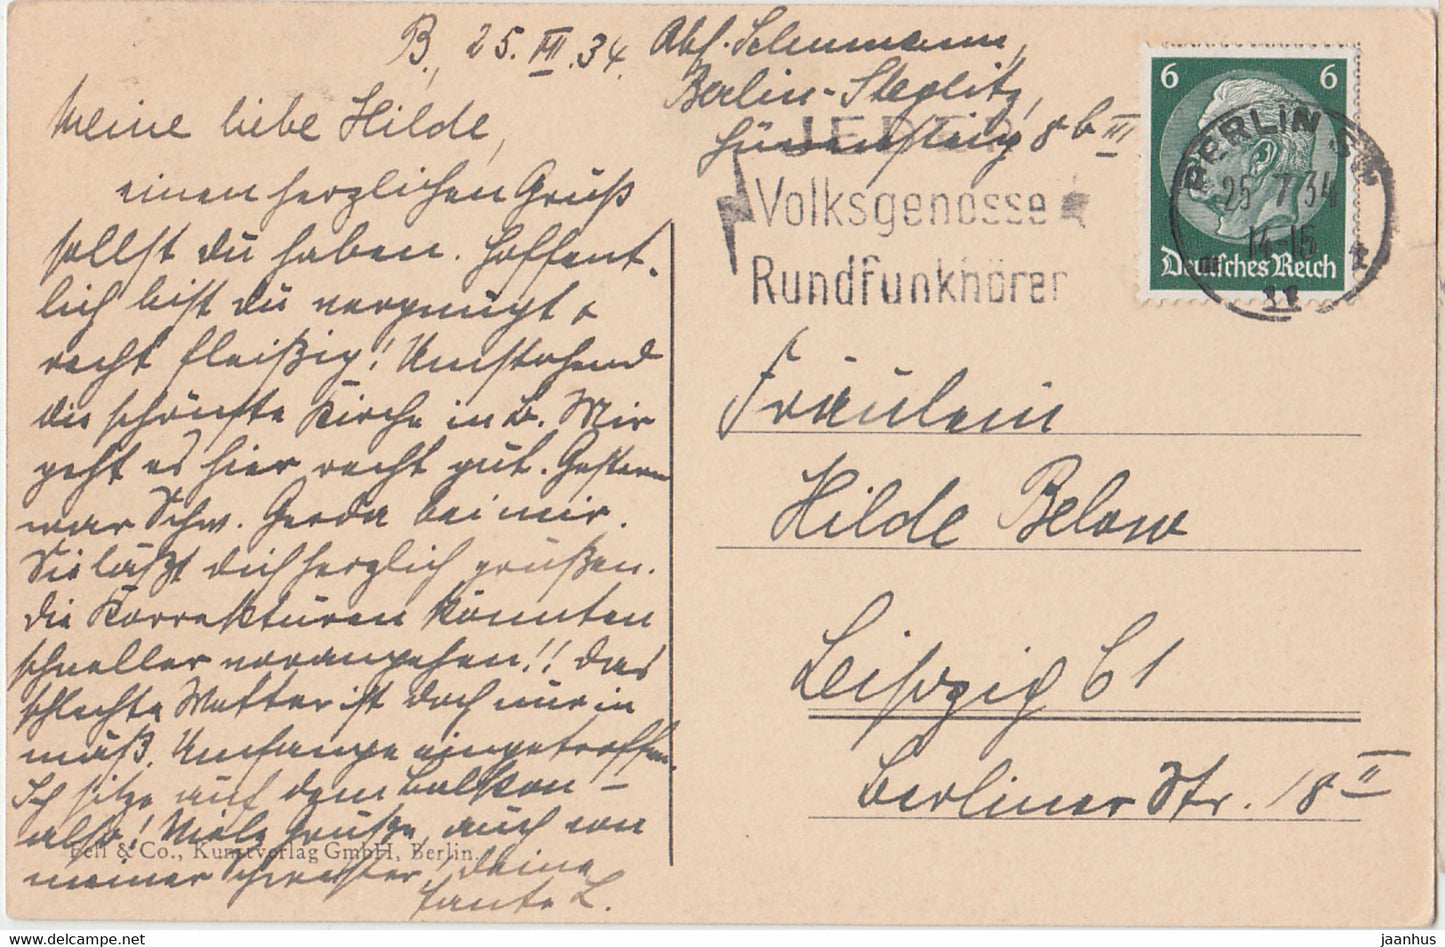 B., 25. VII. 34.
Abs. Schumann,
Berlin-Steglitz,
8 b III
Meine liebe Hilde,
einen herzlichen Gruß
sollst du haben. Hoffent-
lich bist du vergnügt &
recht fleißig! Umstehend
die schönste Kirche in B. Mir
geht es hier recht gut. Gestern
war Schw. Gerda bei mir.
Sie läßt dich herzlich grüßen.
Die Korrekturen könnten
schneller vorangehen!! Das
schlechte Wetter ist doch nur in
mäß. Umfange eingetroffen.
Ich sitze auf dem Balkon –
also! Viele Grüße, auch von
meiner Schwester! Deine
Tante L.
Fell & Co., Kunstverlag GmbH, Berlin.
JEDER
Volksgenosse
Rundfunkhörer
6 6
Deutsches Reich
BERLIN
25 7 34
14-15
Fräulein
Hilde Below
Leipzig C1
Berliner Str. 18 II
delcampe.net
jaanhus